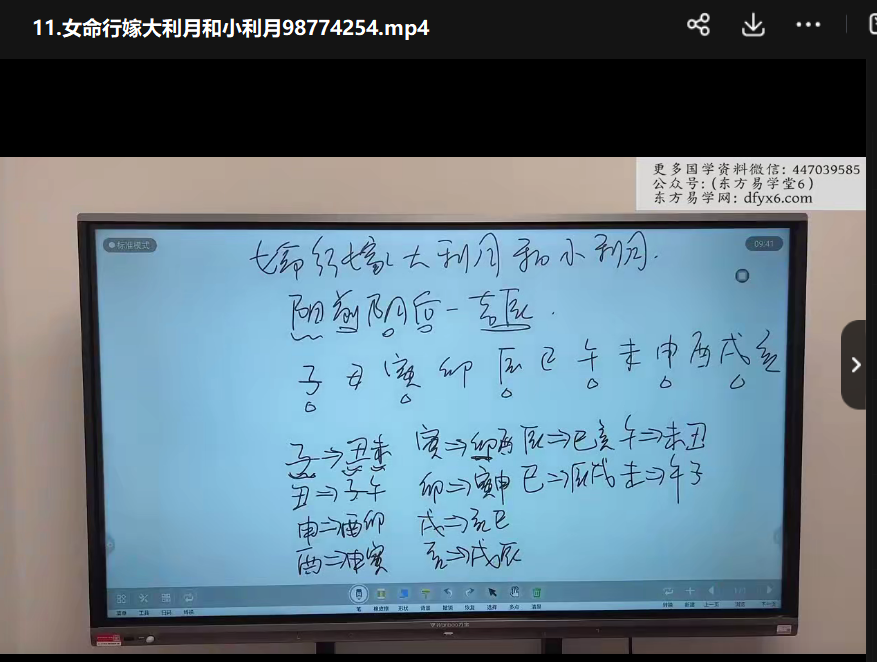 11.女命行嫁大利月和小利月98774254.mp4
更多国学资料微信: 447039585
公众号:(东方易学堂6)
东方易学网: dfyx6.com
标准模式
09:41
女命行嫁大利月和小利月.
阳前阴后一吉辰.
子丑寅卯辰巳午未申酉戌亥
子⇒丑未 寅⇒卯酉 辰⇒巳亥 午⇒未丑
丑⇒子午 卯⇒寅申 巳⇒辰戌 未⇒午子
申⇒酉卯 戌⇒亥巳
酉⇒申寅 亥⇒戌辰